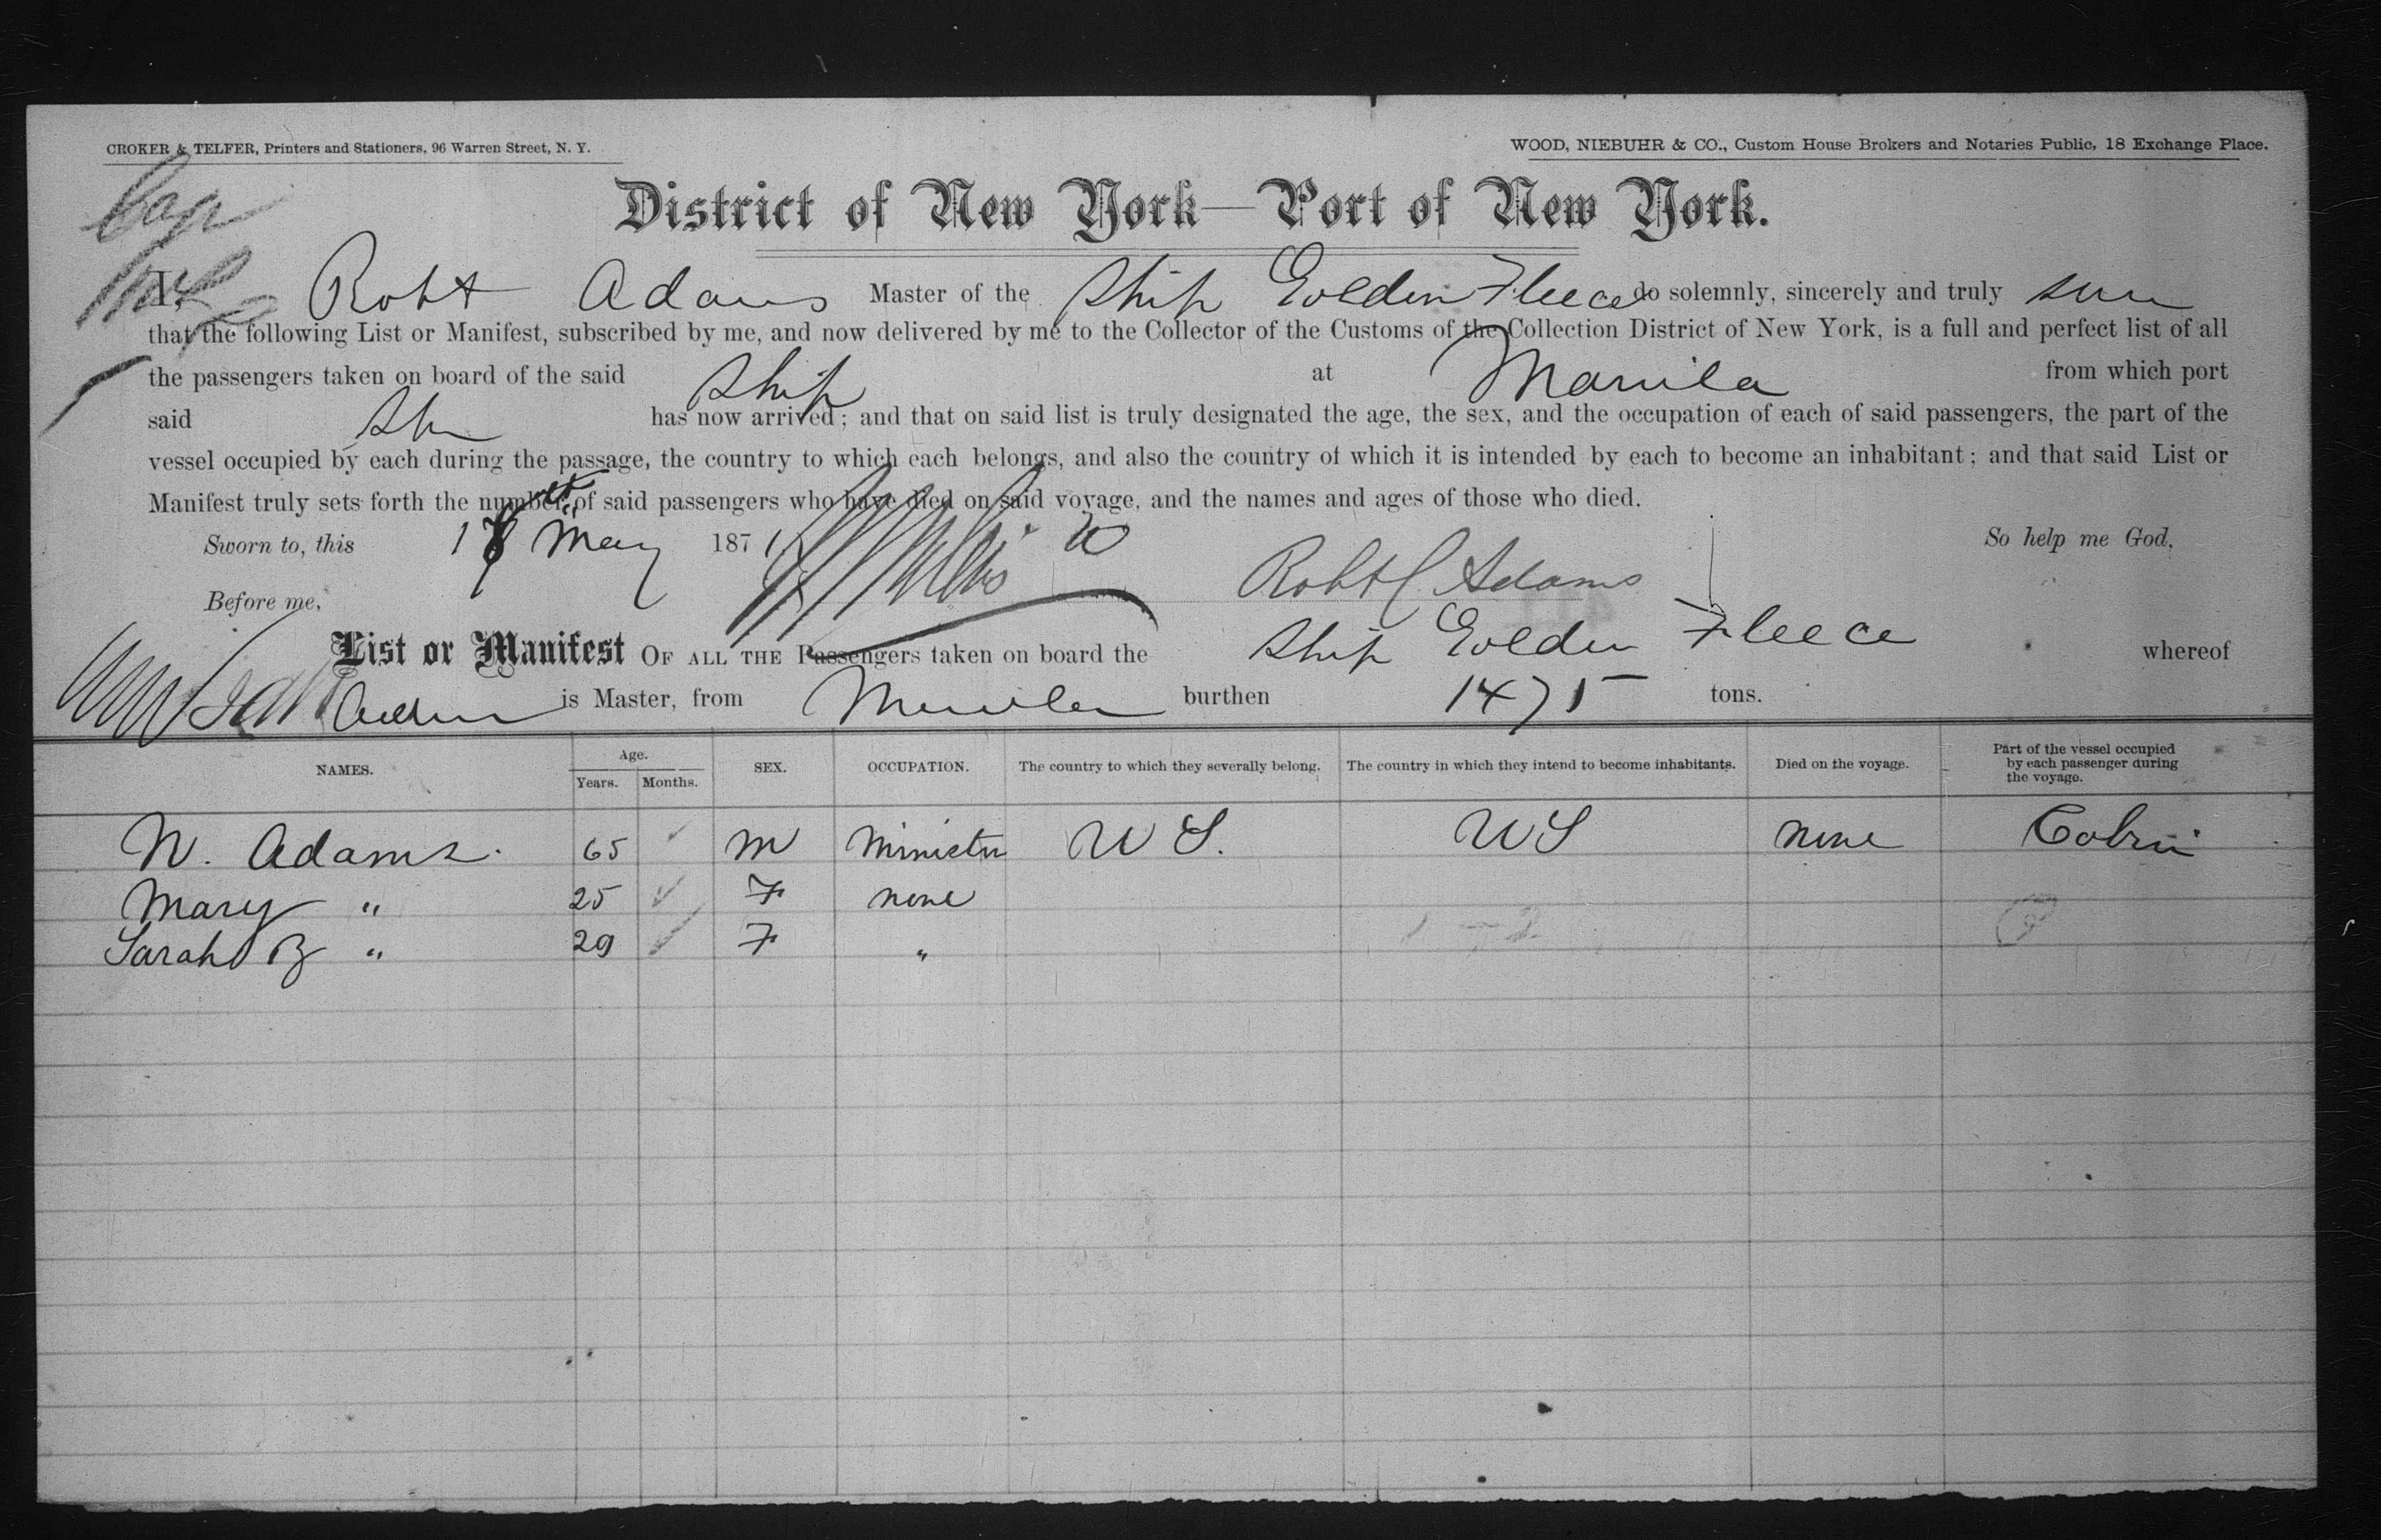 CROKER & TELFER, Printers and Stationers, 96 Warren Street, N. Y.
WOOD, NIEBUHR & CO., Custom House Brokers and Notaries Public, 18 Exchange Place.
District of New York—Port of New York.
I, Robt Adams Master of the Ship Golden Fleece do solemnly, sincerely and truly
that the following List or Manifest, subscribed by me, and now delivered by me to the Collector of the Customs of the Collection District of New York, is a full and perfect list of all
the passengers taken on board of the said Ship at Manila from which port
said has now arrived; and that on said list is truly designated the age, the sex, and the occupation of each of said passengers, the part of the
vessel occupied by each during the passage, the country to which each belongs, and also the country of which it is intended by each to become an inhabitant; and that said List or
Manifest truly sets forth the number of said passengers who have died on said voyage, and the names and ages of those who died.
Sworn to, this May 1871 So help me God,
Before me, Robt C Adams
List or Manifest OF ALL THE Passengers taken on board the Ship Golden Fleece whereof
is Master, from Manila burthen 1475 tons.
NAMES. Age. Years. Months. SEX. OCCUPATION. The country to which they severally belong. The country in which they intend to become inhabitants. Died on the voyage. Part of the vessel occupied by each passenger during the voyage.
N. Adams. 65 M Minister U S. U S none Cabin
Mary " 25 F none
Sarah B " 29 F "